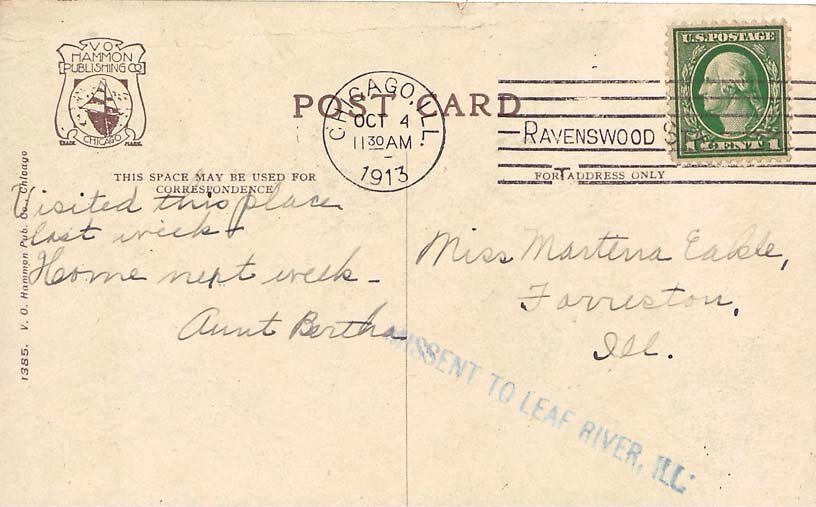 V.O.
HAMMON
PUBLISHING CO
TRADE MARK
CHICAGO
POST CARD
CHICAGO, ILL.
OCT 4
11 30 AM
1913
RAVENSWOOD
U.S. POSTAGE
1 CENT 1
THIS SPACE MAY BE USED FOR
CORRESPONDENCE
FOR ADDRESS ONLY
Visited this place
last week
Home next week -
Aunt Bertha
Miss Martena Eakle,
Forreston,
Ill.
MISSENT TO LEAF RIVER, ILL.
1385. V. O. Hammon Pub. Co., Chicago